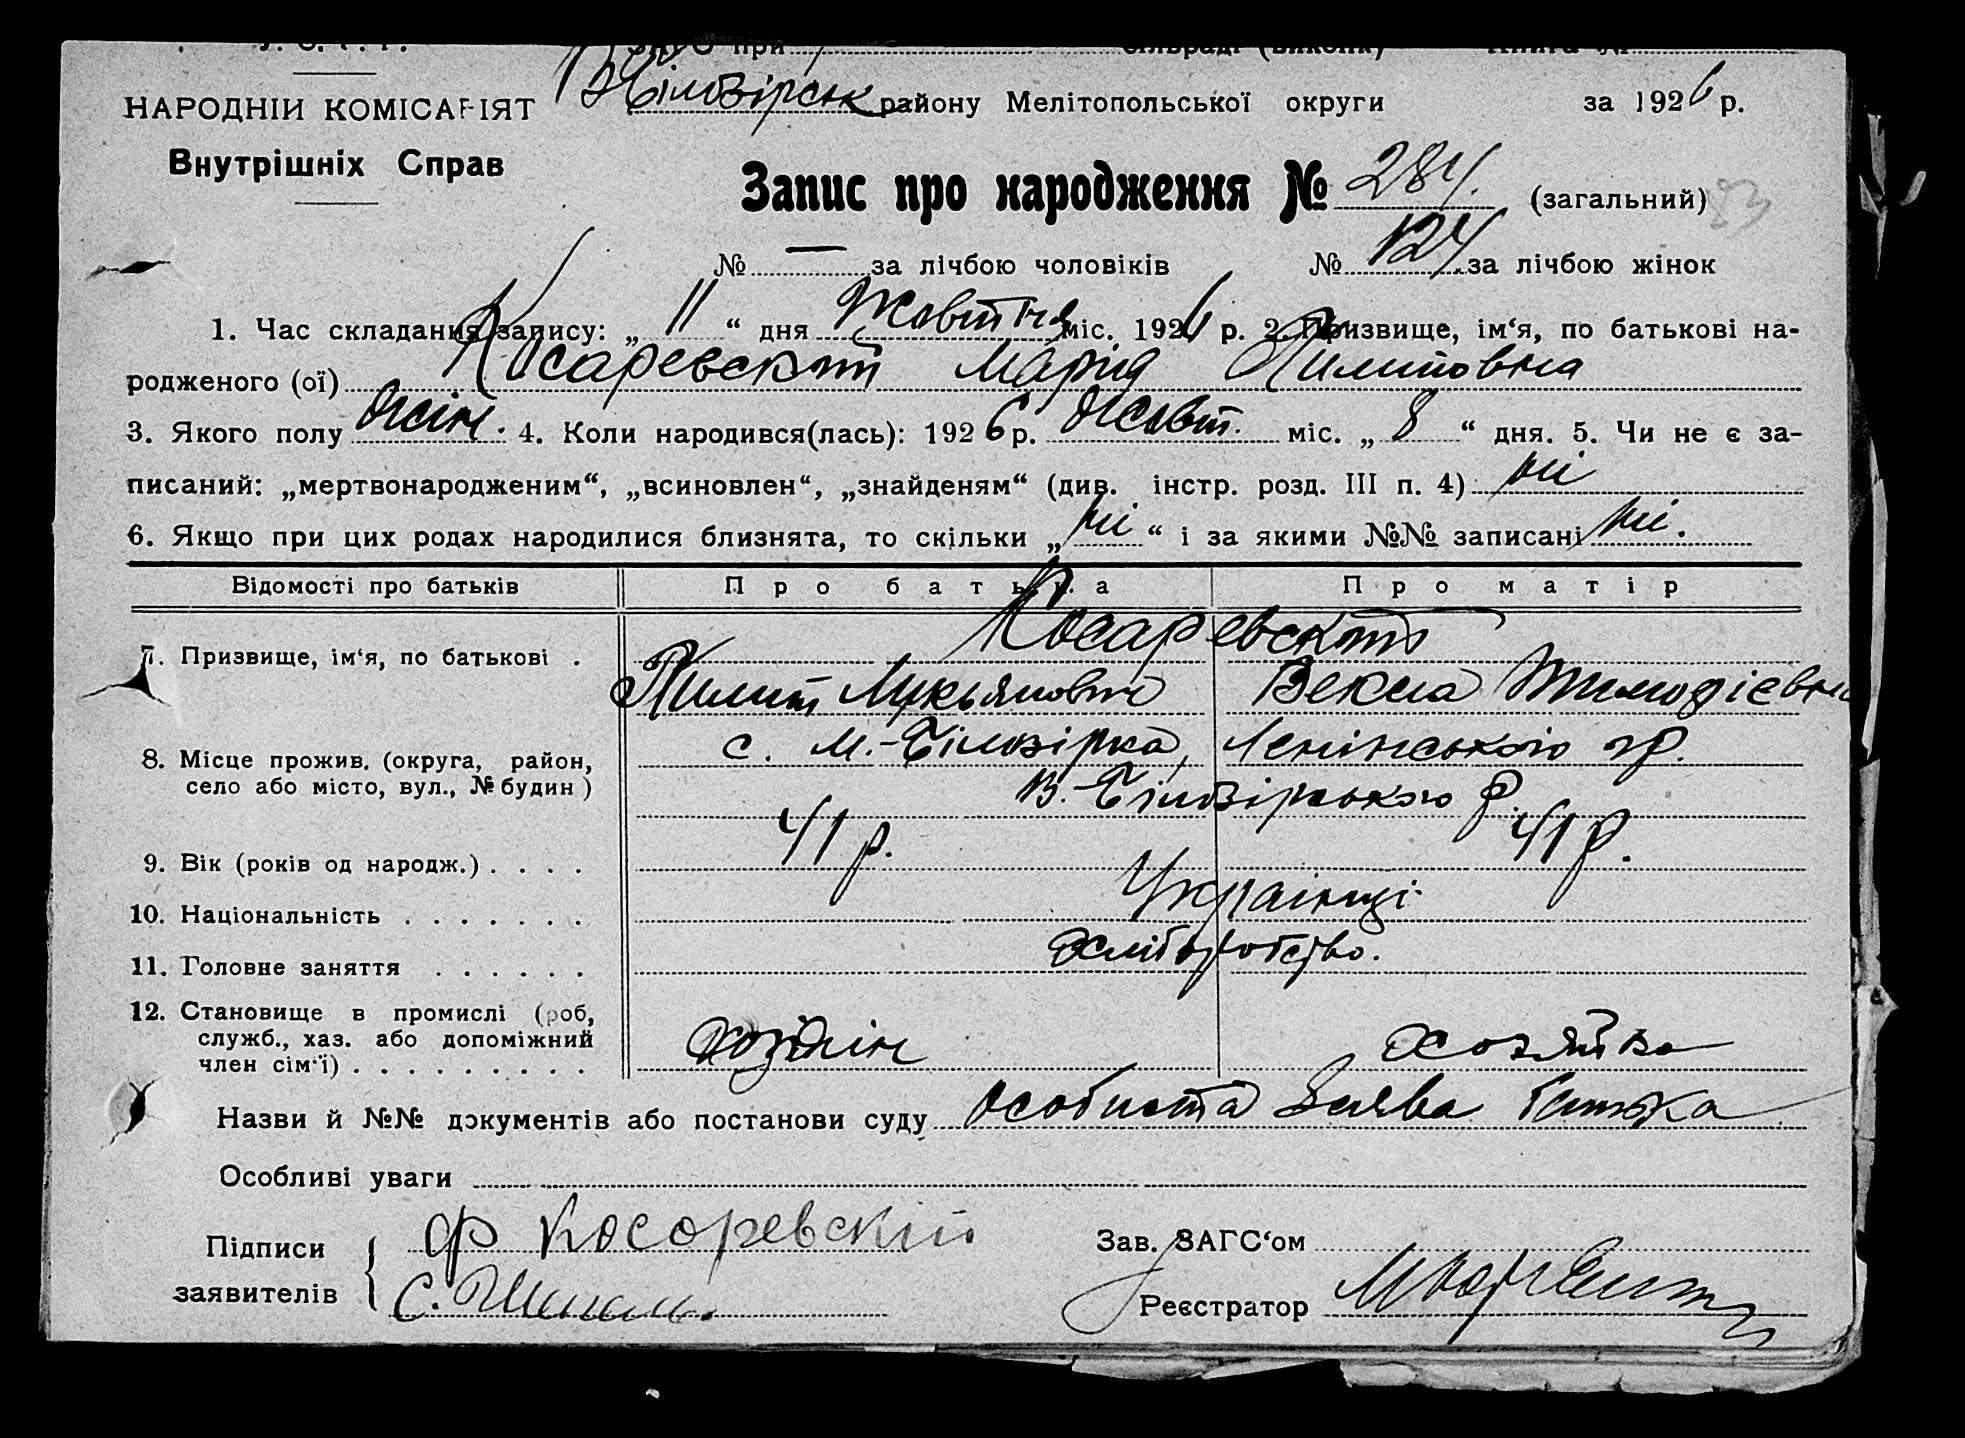 НАРОДНІЙ КОМІСАРІЯТ
Внутрішніх Справ
району Мелітопольської округи за 1926 р.
Запис про народження № 284. (загальний) 83
№ — за лічбою чоловіків № 124 за лічбою жінок
1. Час складання запису: „ 11 “ дня Жовтня міс. 1926 р. 2. Призвище, ім‘я, по батькові на-
родженого (ої) Косаревскит Марія Пилиповна
3. Якого полу жін. 4. Коли народився(лась): 1926 р. жовт. міс. „ 8 “ дня. 5. Чи не є за-
писаний: „мертвонародженим“, „всиновлен“, „знайденям“ (див. інстр. розд. III п. 4) ні
6. Якщо при цих родах народилися близнята, то скільки „ ні “ і за якими №№ записані ні.
Відомості про батьків Про батька Про матір
Косаревскит
7. Призвище, ім‘я, по батькові .
Пилип Лукьянович Векла
8. Місце прожив. (округа, район, село або місто, вул., № будин)
с. М.-Білозірка, Ленінського
В.-Білозірського р.
9. Вік (років од народж.) . . . . 41 р. 41 р.
10. Національність . . . . . . . Українці
11. Головне заняття . . . . . . хліборобство.
12. Становище в промислі (роб,
служб., хаз. або допоміжний
член сім‘ї) . . . . . . . . . хозяїн хозяйка
Назви й №№ документів або постанови суду особиста заява батька
Особливі уваги
Підписи
заявителів
ф Косоревский
С.
Зав. ЗАГС‘ом
Реєстратор